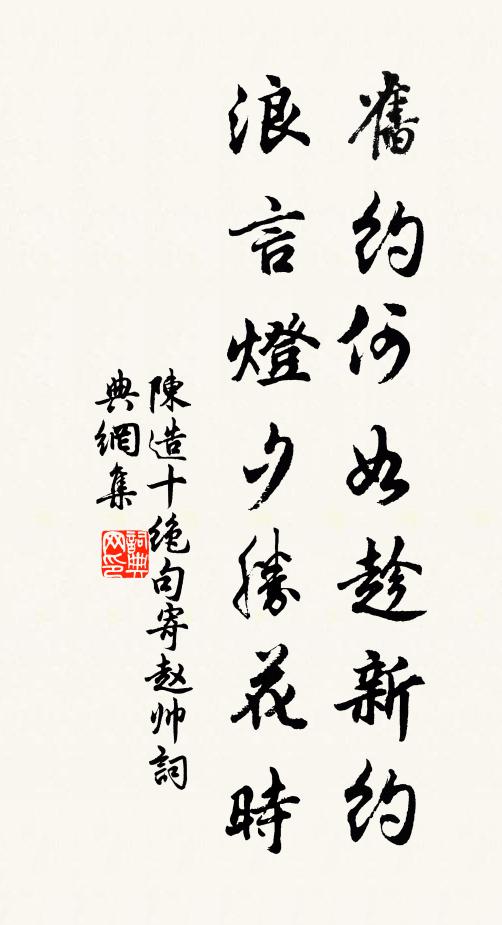 舊約何如趁新約
浪言燈夕勝花時
陳造十绝句寄赵帅詞
典網集
詞典
网印